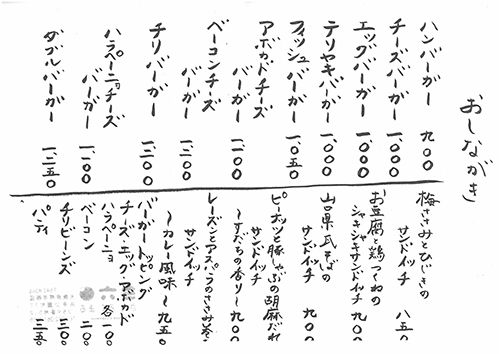 おしながき
ハンバーガー 九〇〇
チーズバーガー 一、〇〇〇
エッグバーガー 一、〇〇〇
テリヤキバーガー 一、〇〇〇
フィッシュバーガー 一、〇五〇
アボカドチーズ
バーガー 一、二〇〇
ベーコンチーズ
バーガー 一、二〇〇
チリバーガー 一、二〇〇
ハラペーニョチーズ
バーガー 一、一〇〇
ダブルバーガー 一、二五〇
梅ささみとひじきの
サンドイッチ 八五〇
お豆腐と鶏つくねの
シャキシャキサンドイッチ 九〇〇
山口県瓦そばの
サンドイッチ 九〇〇
ピーナッツと豚しゃぶの胡麻だれ
サンドイッチ
〜すだちの香り〜 九〇〇
レーズンとアスパラのささみ巻き
サンドイッチ
〜カレー風味〜 九五〇
バーガートッピング
チーズ・エッグ・アボカド
ハラペーニョ 各一〇〇
ベーコン 二〇〇
チリビーンズ 三〇〇
パティ 三五〇